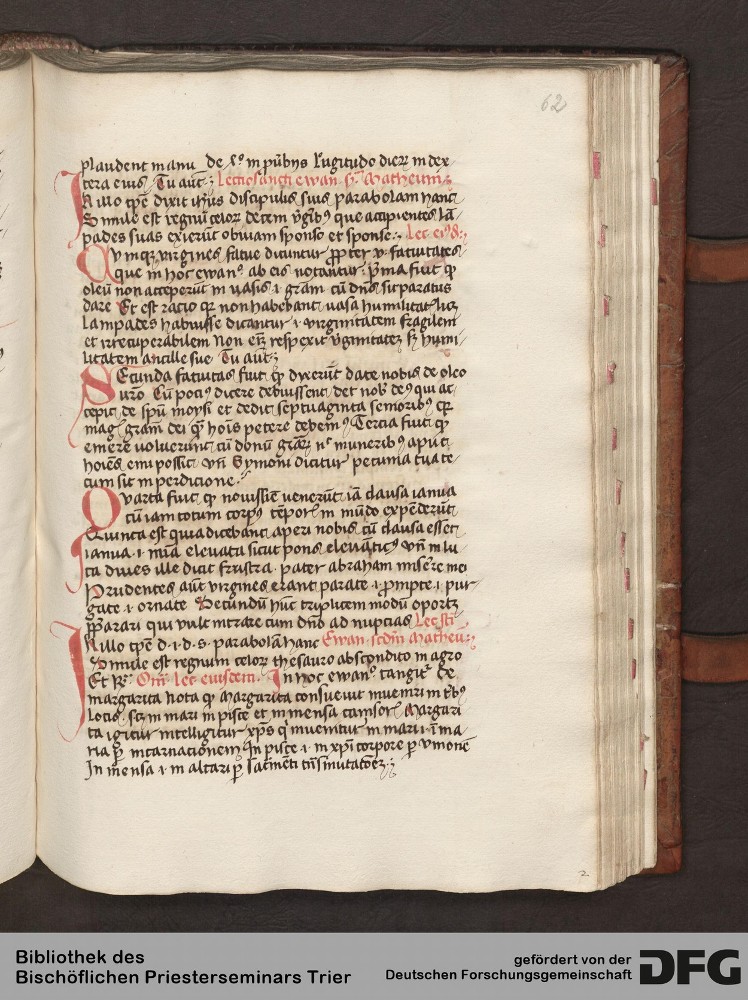 62
plaudent manu de xº in pu̅b̅ijs lugitudo dierꝝ in dex
tera eius Tu aut̅ Lectio sancti ewan. s. Matheum
N illo tp̅e dixit ih̅us discipulis suis parabolam hanc
Simile est regnu̅ celoꝝ decem v̕gi̅bꝰ que accipientes la̅
pades suas exieru̅t obuiam sponso et sponse Lec eiꝰd
Qvinqꝫ virgines fatue dicuntur ꝓpter v. fatuitates
que in hoc ewanº ab eis notantur. p̕ma fuit ꝙ
oleu̅ non acceperu̅t in uasis .i. gr̅am cu̅ dn̅s sit paratus
dare Et est racio qꝛ non habebant uasa humilitat̅
lampades habuisse dicantur .i. virginitatem fragilem
et irrecuperabilem Non eni̅ respexit v̕ginitatez sꝫ humi
litatem ancille sue Tu aut̅
Secunda fatuitas fuit ꝙ dixeru̅t date nobis de oleo
u̅r̅o Cu̅ pociꝰ dicere debuissent det nob̕ deꝰ qui ac
cepit de sp̅u moysi et dedit septuaginta senioribꝰ qꝛ
mag̅ gr̅am dei q̅ ho̅is petere debemꝰ Tercia fuit ꝙ
emere voluerunt cu̅ donu̅ gr̅aꝝ nº muneribꝰ aput
ho̅ies emi possit vn̅ Symoni dicitur pecunia tua te
cum sit in perdicione
Qvarta fuit ꝙ nouissi̅e veneru̅t ia̅ clausa ianua
cu̅ iam totum corpꝰ tēporꝭ in mu̅do expenderu̅t
Quinta est quia dicebant aperi nobis cu̅ clausa esset
ianua .i. mi̅a eleuata sicut pons eleuatꝰ vn̅ in lu
ca diues ille dicit frustra. pater abraham mise̕re mei
Prudentes aut̅ virgines erant parate .i. prompte .i. pur
gate .i. ornate Secundu̅ hu̅c triplicem modu̅ oportꝫ
p̅parari qui vult intrare cum dn̅o ad nupcias Lec sti̅
N illo tp̅e d. i. d. s. parabola̅ hanc Ewan. scdm̅ Matheu̅
Simile est regnum celoꝝ thesauro abscondito in agro
Et Rͣ. Om̅ Lec eiusdem. In hoc ewanº tangit̕ de
margarita Nota ꝙ Margarita consueuit inueniri in t̕bꝰ
locis. scꝫ in mari in pisce et in mensa Margari
ta igitur intelligitur xp̅s q̕ inuenitur in mari .i. i̅ ma
ria ꝑ incarnacionem In pisce .i. in xp̅i corpore ꝑ vnione̅
In mensa .i. in altari ꝑ sac̅me̅ti tn̅smutato̅ez
2
Bibliothek des
Bischöflichen Priesterseminars Trier
gefördert von der
Deutschen Forschungsgemeinschaft
DFG